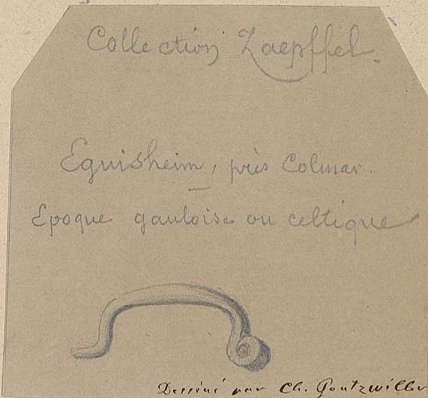 Collection Zaepffel.
Eguisheim, près Colmar.
Epoque gauloise ou celtique
Dessiné par Ch. Goutzwiller